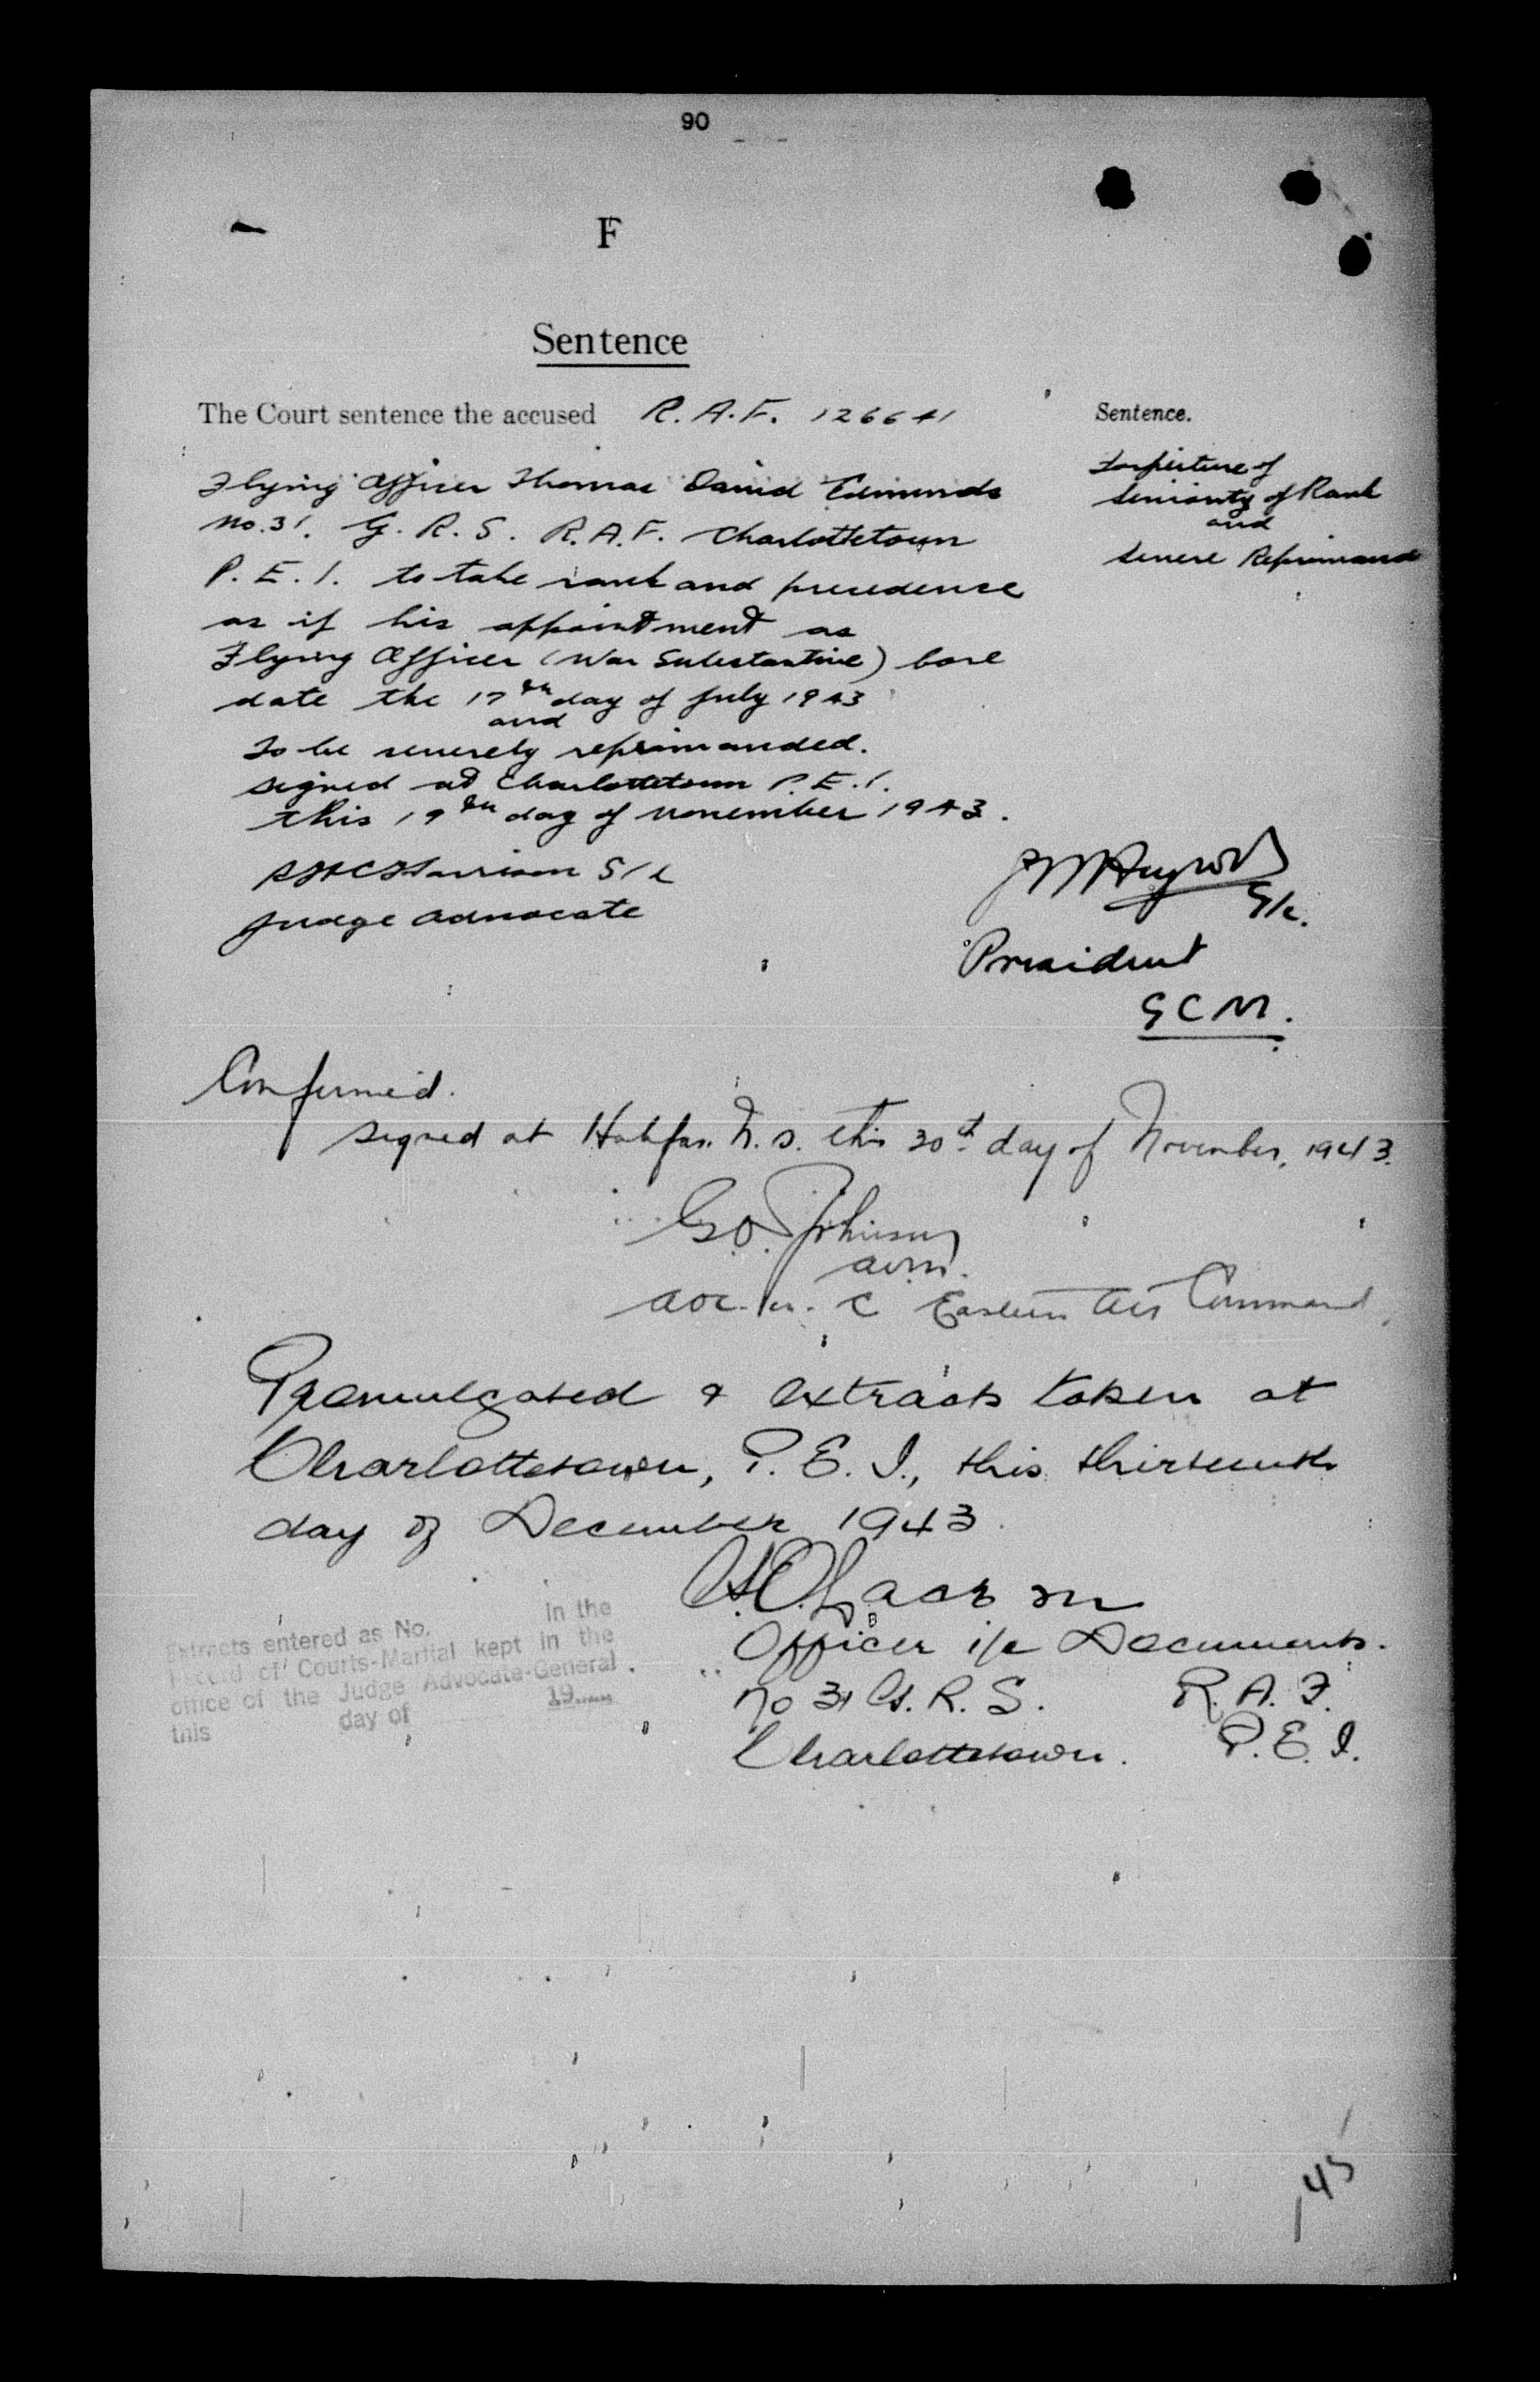 90
F
Sentence
The Court sentence the accused R.A.F. 126641
Sentence.
Forfeiture of
Seniority of Rank
and
Severe Reprimand
Flying Officer Thomas David Edmunds
No. 31. G. R. S. R.A.F. Charlottetown
P. E. I. to take rank and precedence
as if his appointment as
Flying Officer (War Substantive) bore
date the 17th day of July 1943
and
To be severely reprimanded.
Signed at Charlottetown P.E.I.
this 19th day of November 1943.
Harrison S/L
Judge Advocate
G/C.
President
GCM.
Confirmed.
Signed at Halifax N.S. this 30th day of November, 1943.
G.O. Johnson
AVM.
AOC.-in-C Eastern Air Command
Promulgated & extracts taken at
Charlottetown, P.E.I., this thirteenth
day of December 1943.
Officer i/c Documents.
No 31 G.R.S. R.A.F.
Charlottetown. P.E.I.
Extracts entered as No. in the
Record of Courts-Martial kept in the
office of the Judge Advocate-General
this day of 19
145